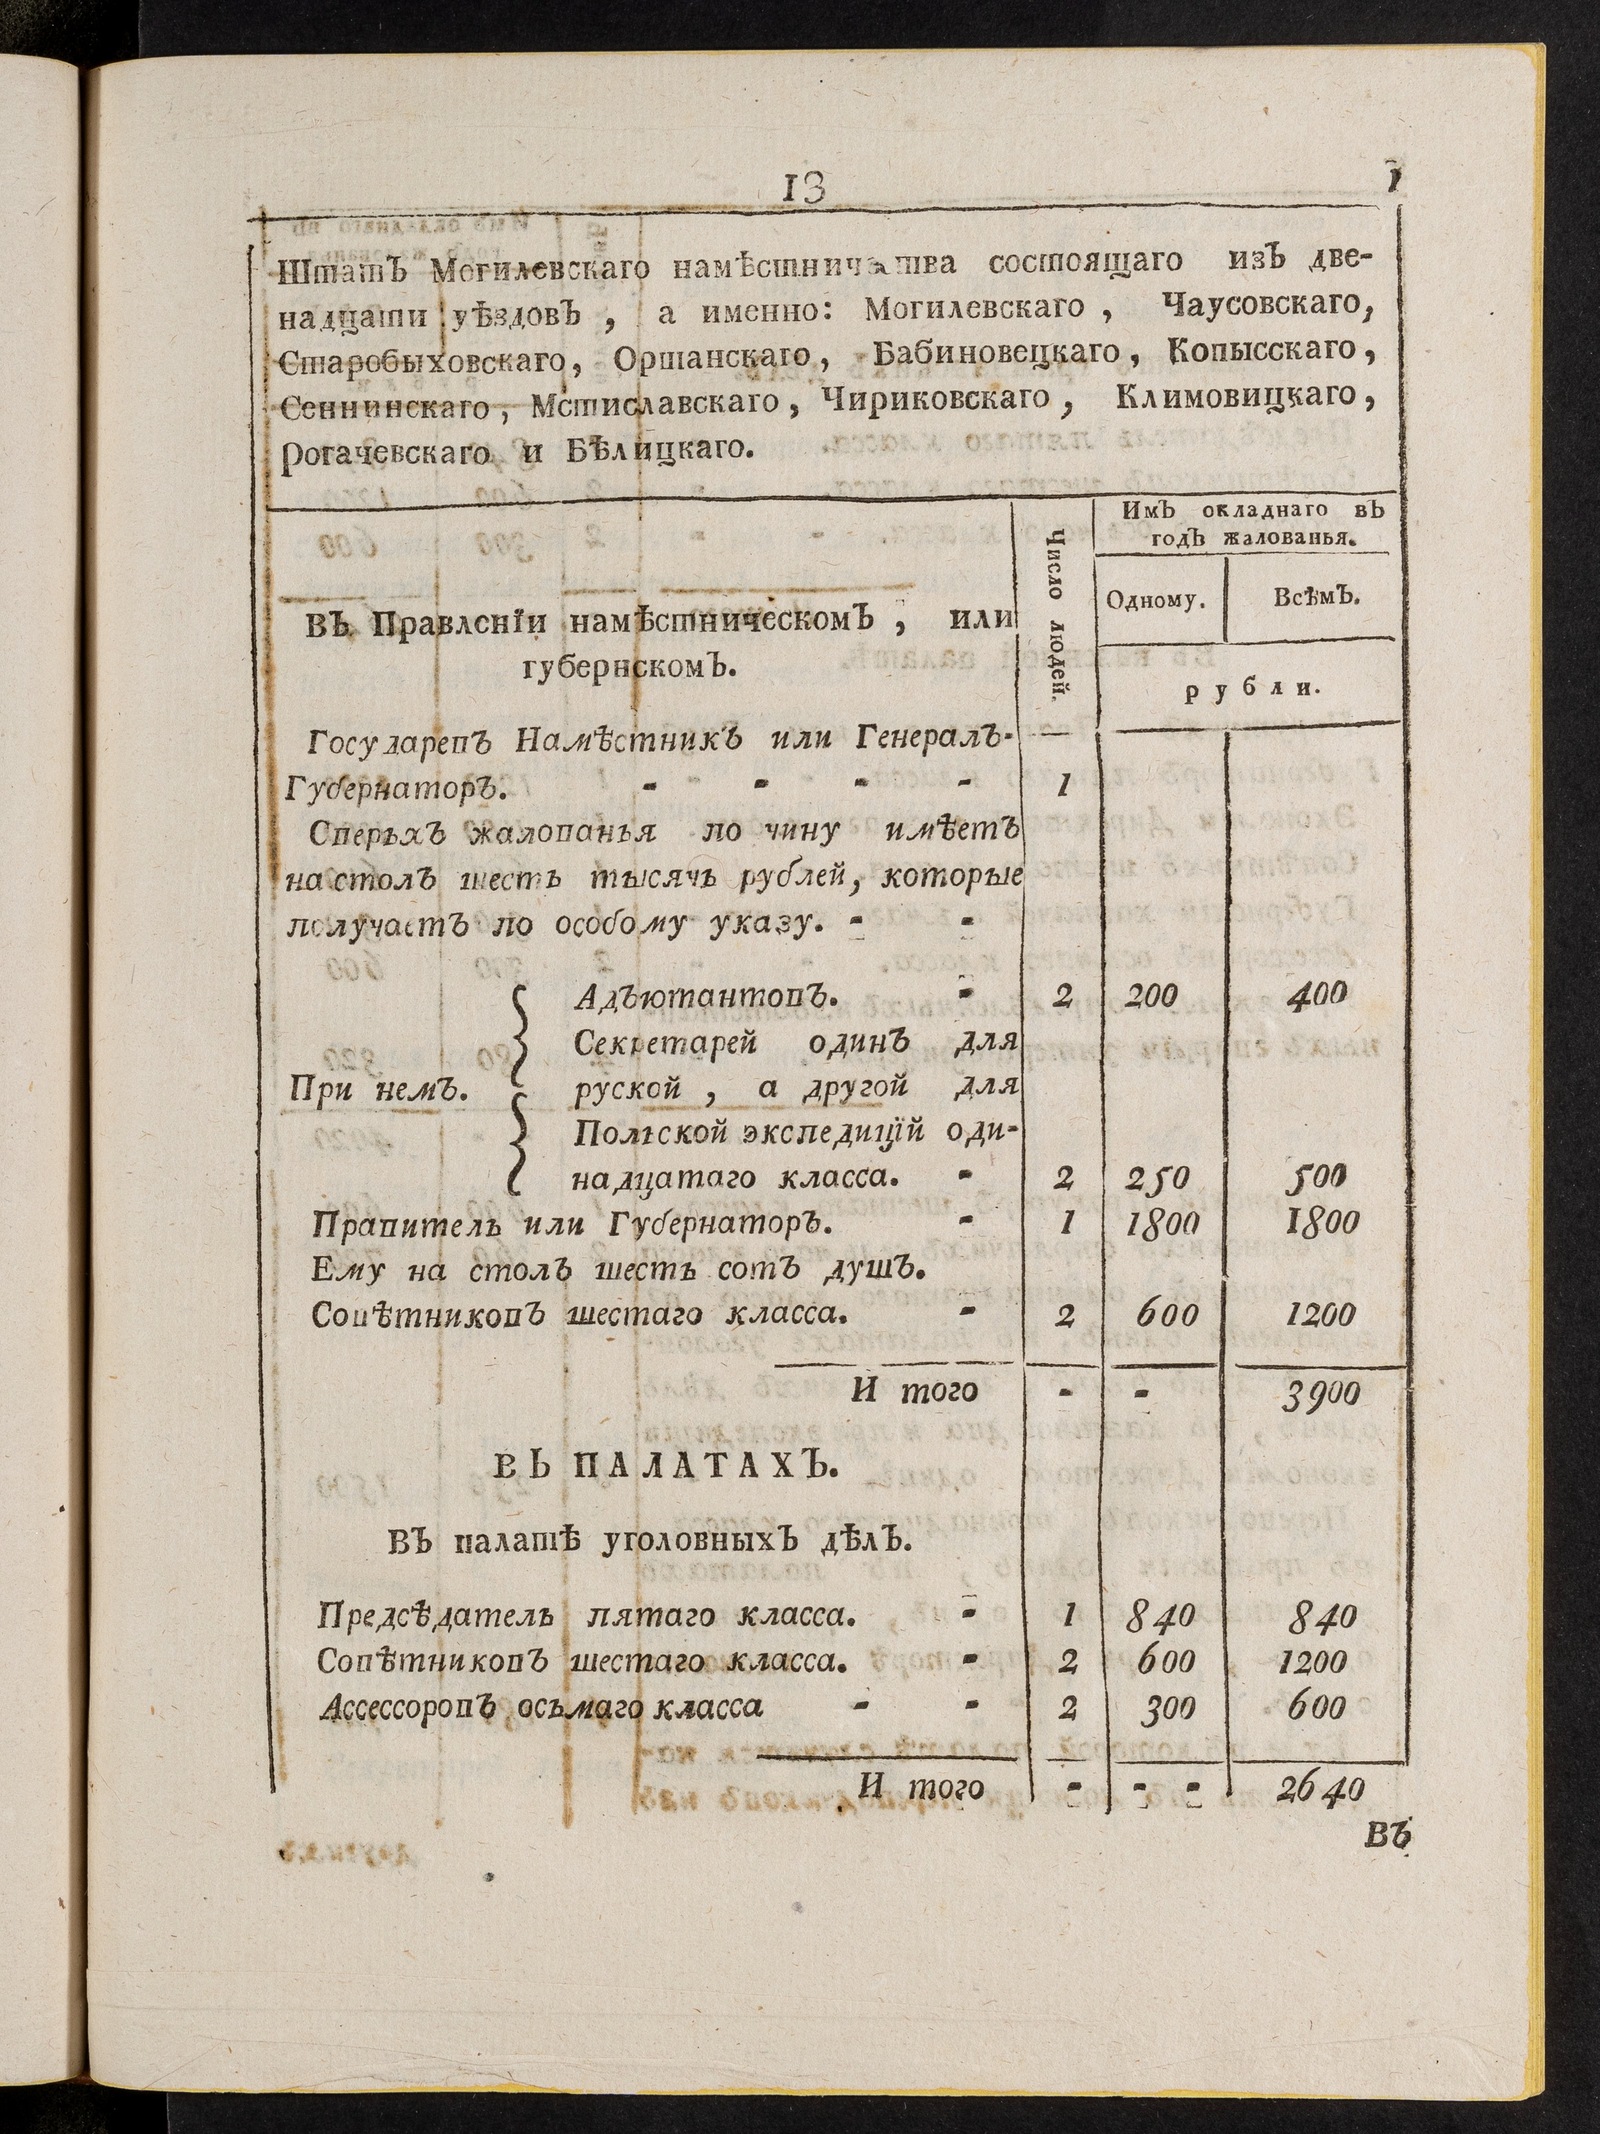 13
1
Штатъ Могилевскаго намѣстничества состоящаго изъ две-
надцати уѣздовъ, а именно: Могилевскаго, Чаусовскаго,
Старобыховскаго, Оршанскаго, Бабиновецкаго, Копысскаго,
Сеннинскаго, Мстиславскаго, Чириковскаго, Климовицкаго,
рогачевскаго и Бѣлицкаго.
Число людей.
Имъ окладнаго въ
годъ жалованья.
Одному. Всѣмъ.
рубли.
Въ Правленіи намѣстническомъ, или
губернскомъ.
Государевъ Намѣстникъ или Генералъ-
Губернаторъ. - - - - 1
Сверьхъ жалованья по чину имѣетъ
на столъ шесть тысячь рублей, которые
получаетъ по особому указу. - -
Адъютантовъ. - 2 200 400
Секретарей одинъ для
При немъ. руской, а другой для
Польской экспедицїй оди-
надцатаго класса. - 2 250 500
Правитель или Губернаторъ. - 1 1800 1800
Ему на столъ шесть сотъ душъ.
Совѣтниковъ шестаго класса. - 2 600 1200
И того - - 3900
ВЪ ПАЛАТАХЪ.
Въ палатѣ уголовныхъ дѣлъ.
Предсѣдатель пятаго класса. - 1 840 840
Совѣтниковъ шестаго класса. - 2 600 1200
Ассессоровъ осьмаго класса - - 2 300 600
И того - - - 2640
Въ